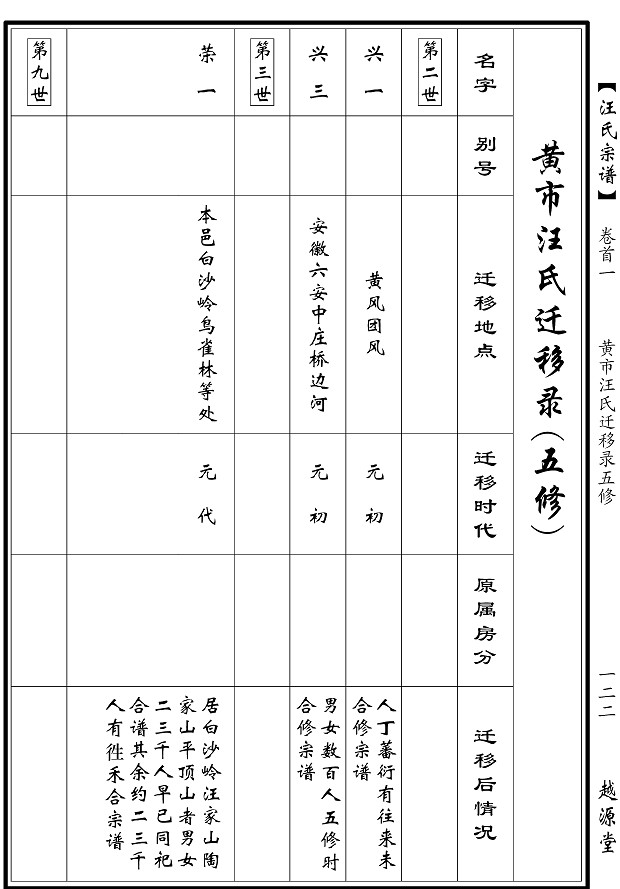 【汪氏宗谱】
卷首一
黄市汪氏迁移录五修
一二二
越源堂
黄市汪氏迁移录(五修)
名字
别号
迁移地点
迁移时代
原属房分
迁移后情况
第二世
兴一
黄风团风
元初
人丁蕃衍有往来未
合修宗谱
兴三
安徽六安中庄桥边河
元初
男女数百人五修时
合修宗谱
第三世
荣一
本邑白沙岭鸟雀林等处
元代
居白沙岭汪家山陶
家山平顶山者男女
二三千人早已同祀
合谱其余约二三千
人有往禾合宗谱
第九世